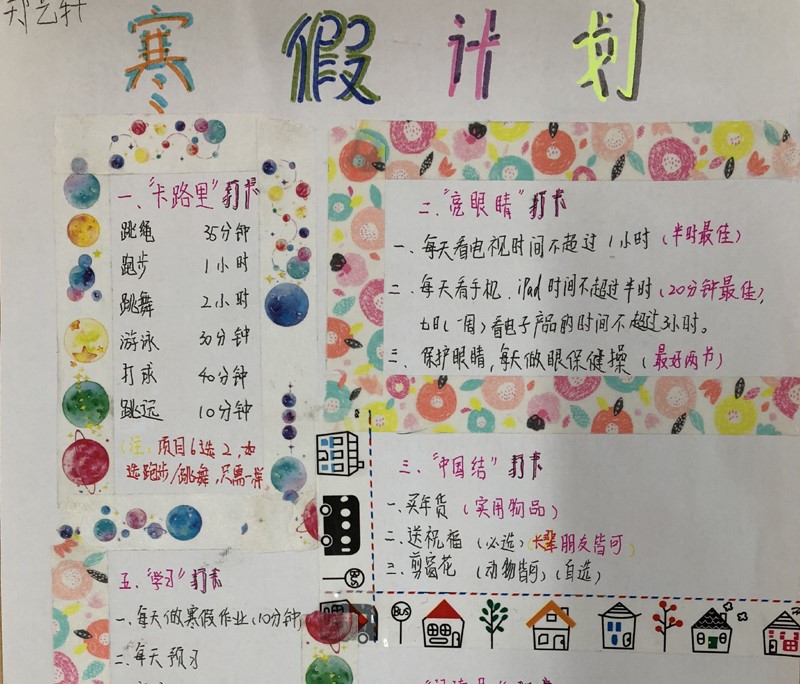 郑艺轩
寒假计划
一、“卡路里”打卡
跳绳 35分钟
跑步 1小时
跳舞 2小时
游泳 30分钟
打球 40分钟
跳远 10分钟
(注:项目6选2,如
选跑步/跳舞,只需一样
二、“亮眼睛”打卡
一、每天看电视时间不超过1小时(半时最佳)
二、每天看手机、iPad时间不超过半时(20分钟最佳),
七日(一周)看电子产品的时间不超过3小时。
三、保护眼睛,每天做眼保健操(最好两节)
三、“中国结”打卡
一、买年货(实用物品)
二、送祝福(必选)长辈朋友皆可)
三、剪窗花(动物皆可)(自选)
BUS
BUS
五、“学习”打卡
一、每天做寒假作业(10分钟
二、每天预习